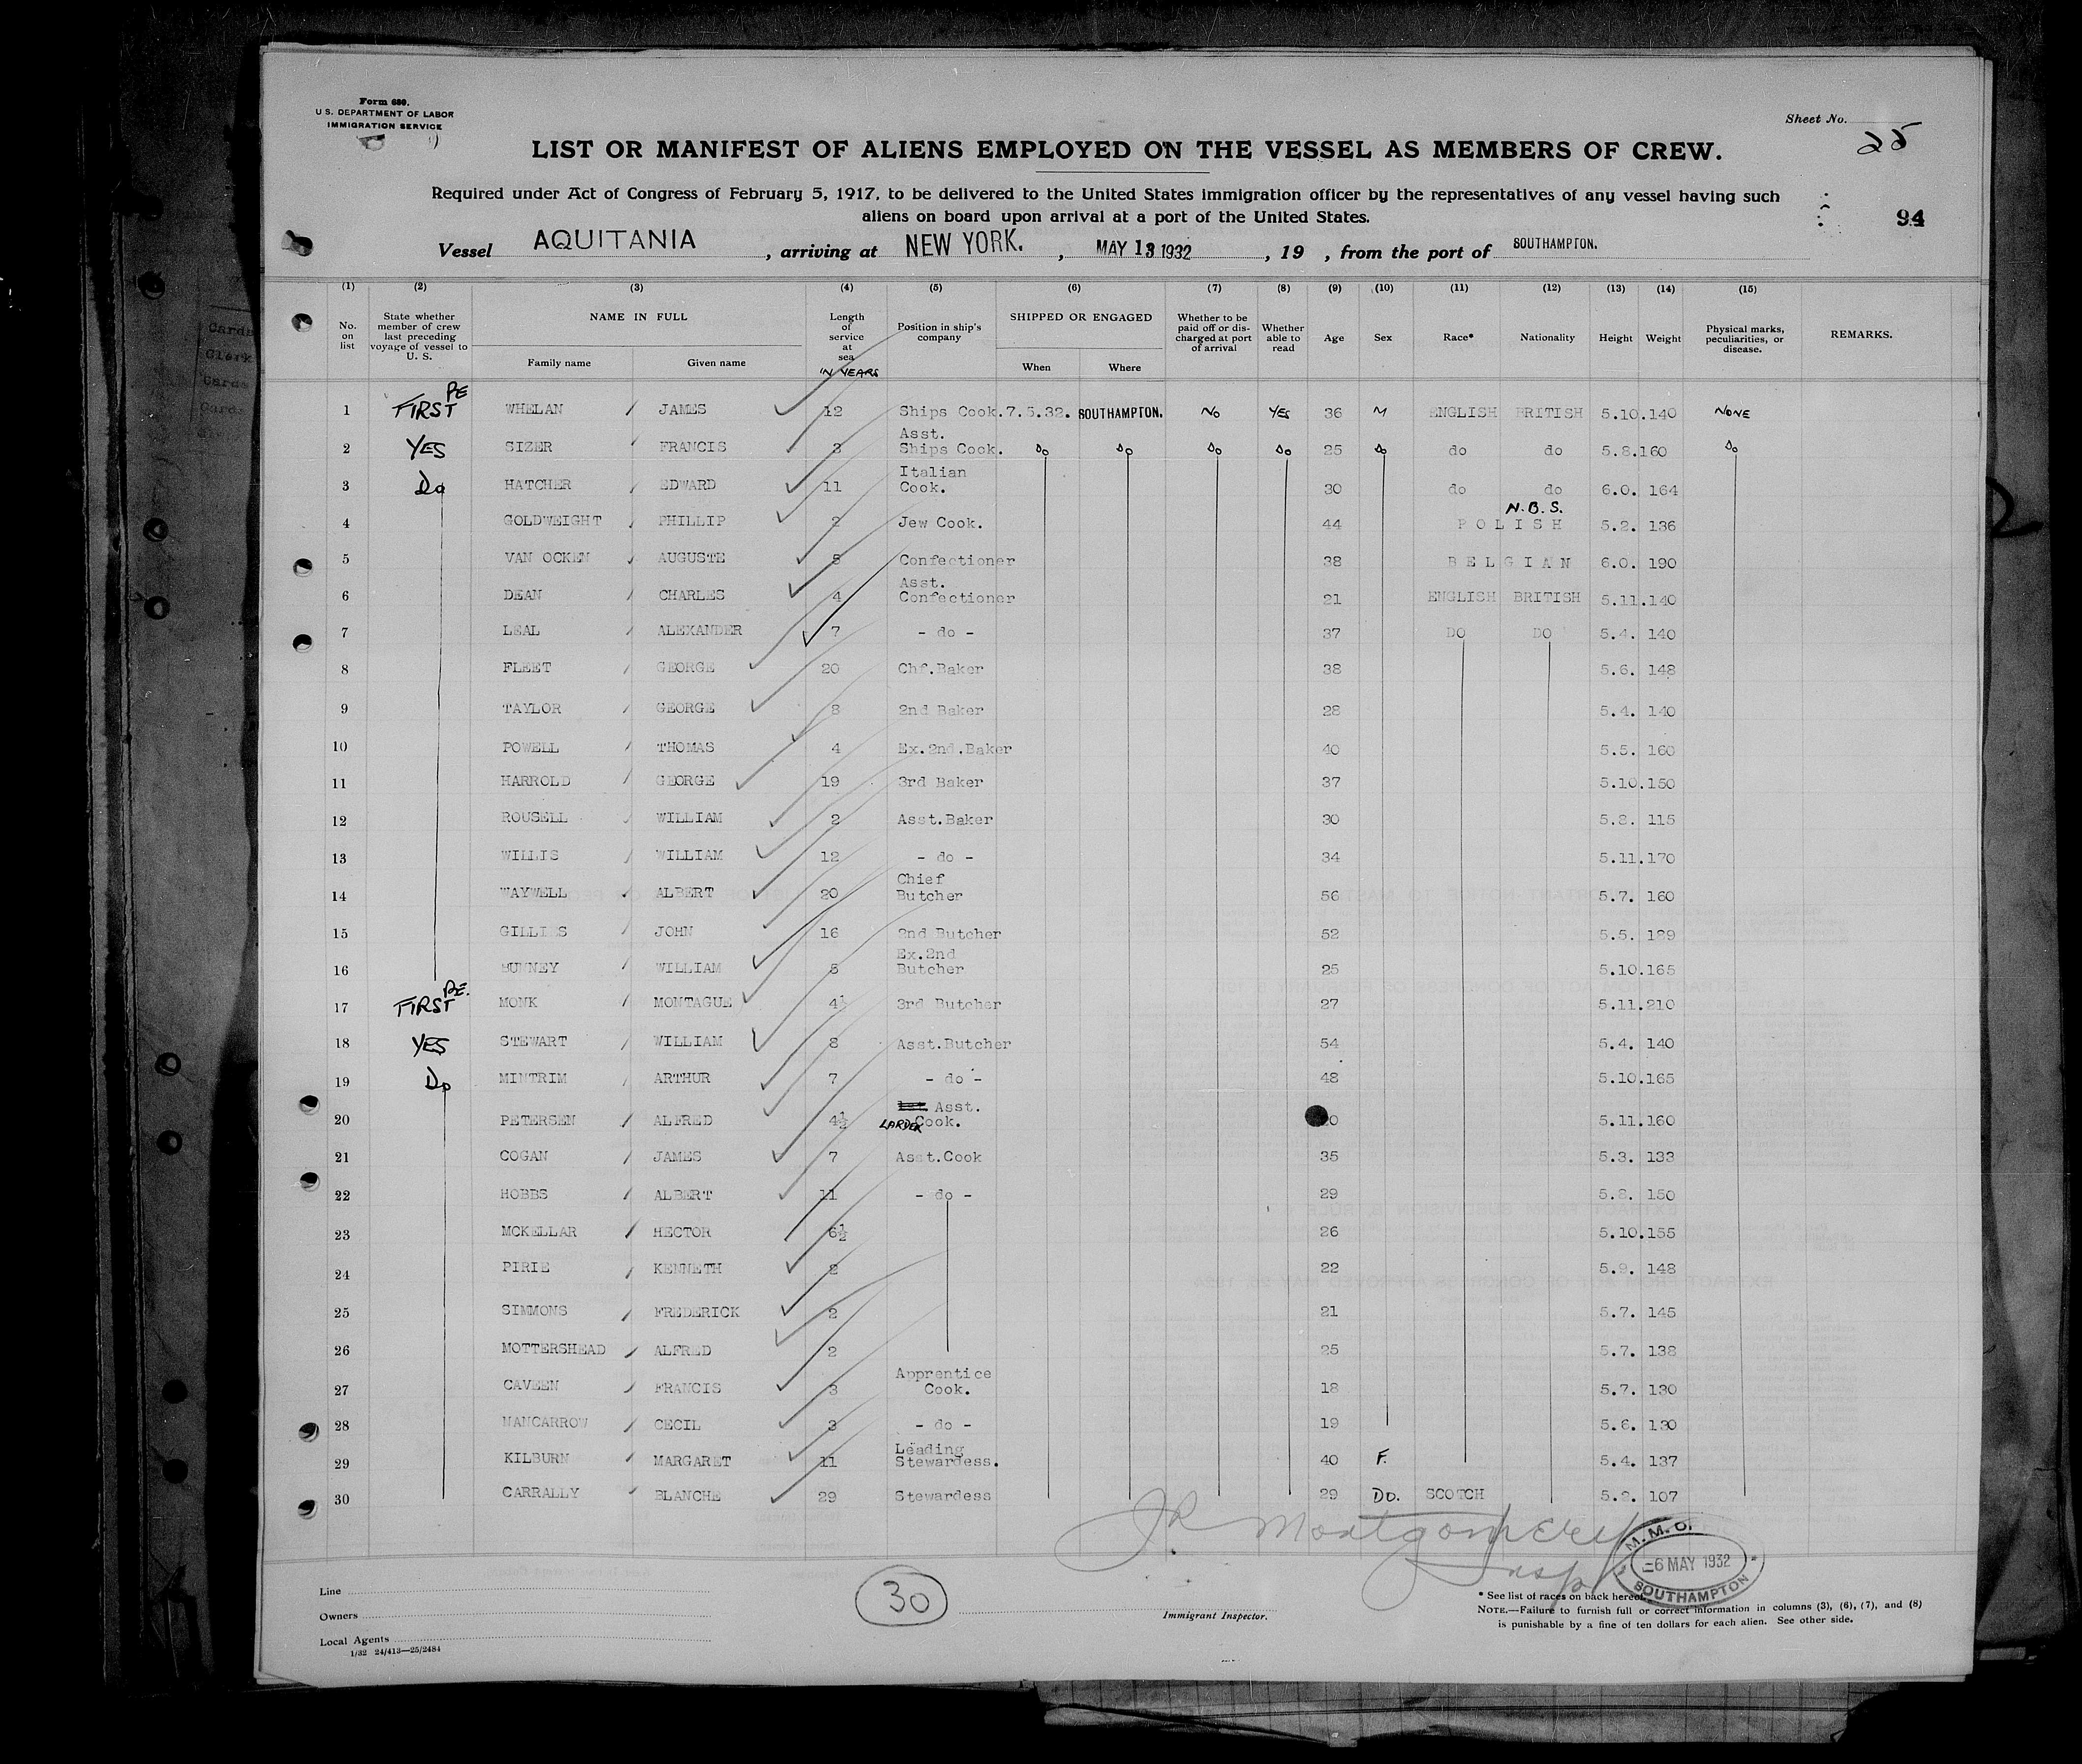 Form 680.
U. S. DEPARTMENT OF LABOR
IMMIGRATION SERVICE
Sheet No. 25
LIST OR MANIFEST OF ALIENS EMPLOYED ON THE VESSEL AS MEMBERS OF CREW.
Required under Act of Congress of February 5, 1917, to be delivered to the United States immigration officer by the representatives of any vessel having such
aliens on board upon arrival at a port of the United States.
94
Vessel AQUITANIA, arriving at NEW YORK., MAY 13 1932, 19 , from the port of SOUTHAMPTON.
(1) (2) (3) (4) (5) (6) (7) (8) (9) (10) (11) (12) (13) (14) (15)
No. on list State whether member of crew last preceding voyage of vessel to U. S. NAME IN FULL Family name Given name Length of service at sea IN YEARS Position in ship's company SHIPPED OR ENGAGED When Where Whether to be paid off or discharged at port of arrival Whether able to read Age Sex Race* Nationality Height Weight Physical marks, peculiarities, or disease. REMARKS.
1 FIRST PE WHELAN JAMES 12 Ships Cook. 7.5.32. SOUTHAMPTON. No YES 36 M ENGLISH BRITISH 5.10. 140 NONE
2 YES SIZER FRANCIS 3 Asst. Ships Cook. Do Do Do Do 25 Do do do 5.8. 160 Do
3 Do HATCHER EDWARD 11 Italian Cook. 30 do do 6.0. 164
4 GOLDWEIGHT PHILLIP 2 Jew Cook. 44 N.B.S. POLISH 5.2. 136
5 VAN OCKEN AUGUSTE 5 Confectioner 38 BELGIAN 6.0. 190
6 DEAN CHARLES 4 Asst. Confectioner 21 ENGLISH BRITISH 5.11. 140
7 LEAL ALEXANDER 7 - do - 37 DO DO 5.4. 140
8 FLEET GEORGE 20 Chf.Baker 38 5.6. 148
9 TAYLOR GEORGE 8 2nd Baker 28 5.4. 140
10 POWELL THOMAS 4 Ex.2nd.Baker 40 5.5. 160
11 HARROLD GEORGE 19 3rd Baker 37 5.10. 150
12 ROUSELL WILLIAM 2 Asst.Baker 30 5.8. 115
13 WILLIS WILLIAM 12 - do - 34 5.11. 170
14 WAYWELL ALBERT 20 Chief Butcher 56 5.7. 160
15 GILLIES JOHN 16 2nd Butcher 52 5.5. 189
16 BUNNEY WILLIAM 5 Ex.2nd Butcher 25 5.10. 165
17 FIRST PE. MONK MONTAGUE 4½ 3rd Butcher 27 5.11. 210
18 YES STEWART WILLIAM 8 Asst.Butcher 54 5.4. 140
19 Do MINTRIM ARTHUR 7 - do - 48 5.10. 165
20 PETERSEN ALFRED 4½ Asst. LARDER Cook. 5.11. 160
21 COGAN JAMES 7 Asst.Cook 35 5.3. 133
22 HOBBS ALBERT 11 - do - 29 5.8. 150
23 MCKELLAR HECTOR 6½ 26 5.10. 155
24 PIRIE KENNETH 2 22 5.9. 148
25 SIMMONS FREDERICK 2 21 5.7. 145
26 MOTTERSHEAD ALFRED 2 25 5.7. 138
27 CAVEEN FRANCIS 3 Apprentice Cook. 18 5.7. 130
28 NANCARROW CECIL 3 - do - 19 5.6. 130
29 KILBURN MARGARET 11 Leading Stewardess. 40 F. 5.4. 137
30 CARRALLY BLANCHE 29 Stewardess 29 DO. SCOTCH 5.2. 107
JR Montgomery
Insp
M.M.O.
-6 MAY 1932
SOUTHAMPTON
Line
Owners
Local Agents
1/32 24/413—25/2484
30
Immigrant Inspector.
* See list of races on back hereof.
NOTE.—Failure to furnish full or correct information in columns (3), (6), (7), and (8)
is punishable by a fine of ten dollars for each alien. See other side.